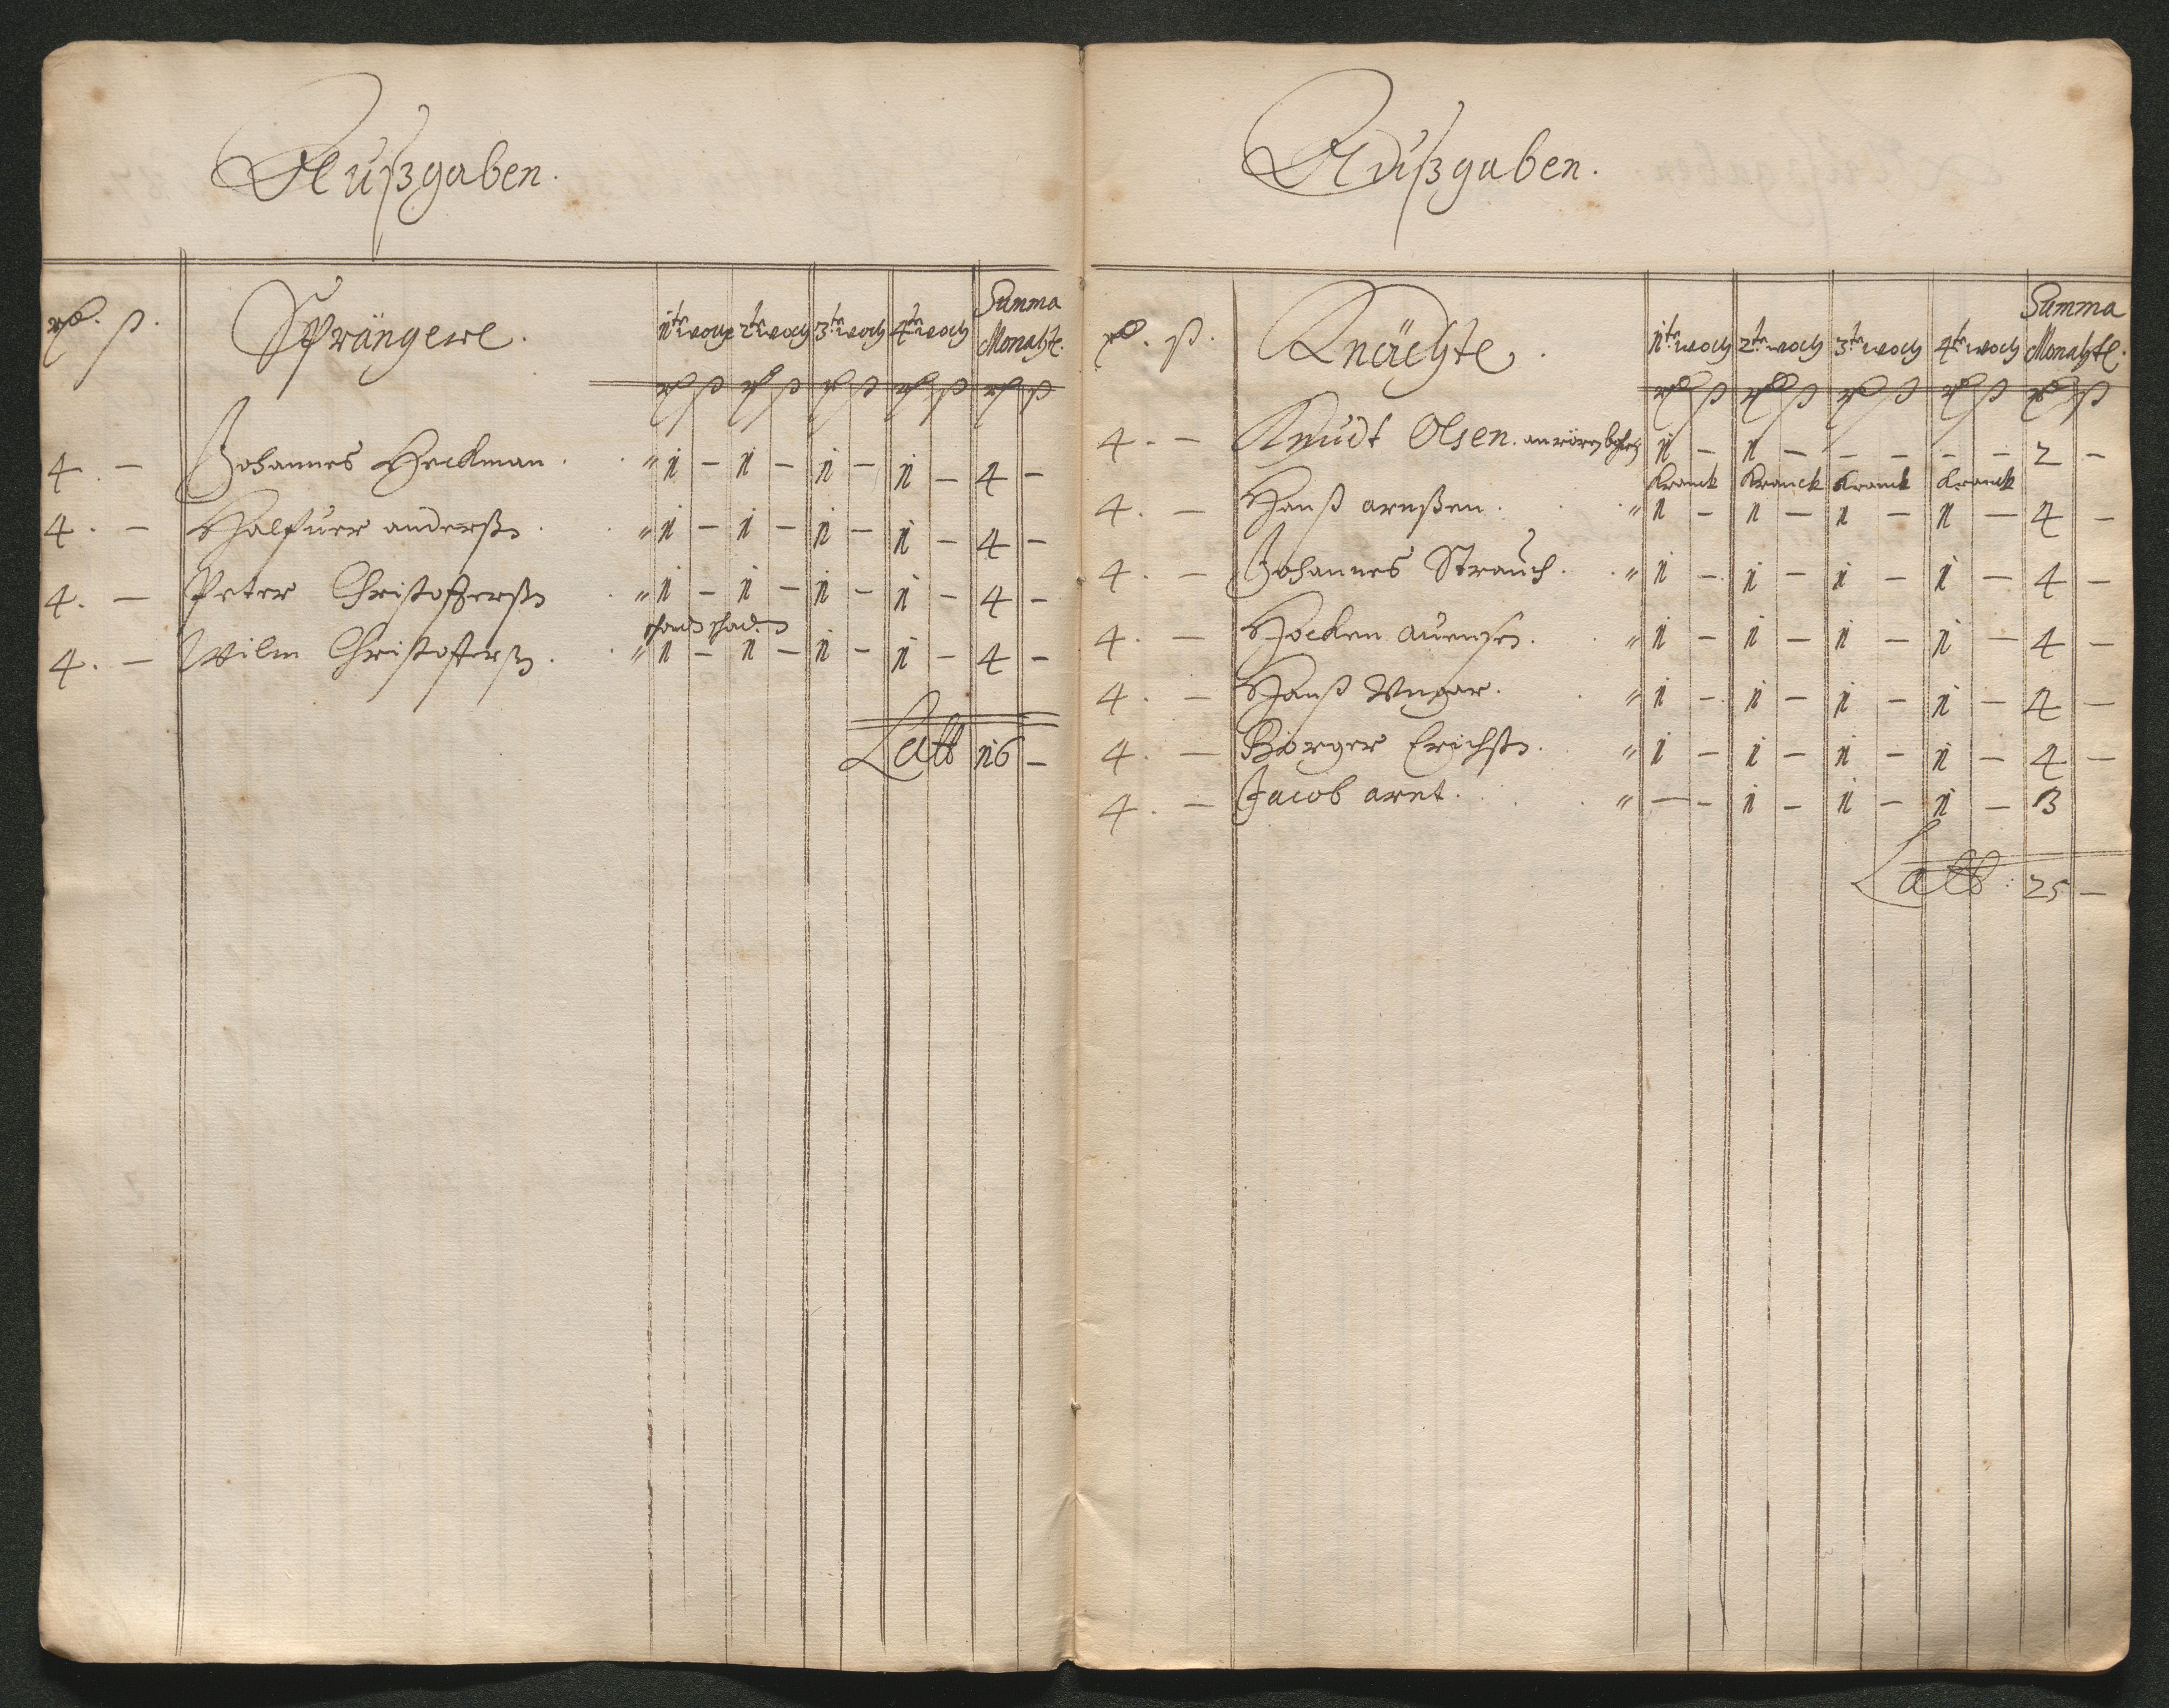 Außgaben.
rd. ß. Sprängere. 1te woch 2te woch 3te woch 4te woch Summa Monahte.
rd ß rd ß rd ß rd ß rd ß
4. — Johannes Heckman. " 1 — 1 — 1 — 1 — 4 —
4. — Halfuer anderßen. " 1 — 1 — 1 — 1 — 4 —
4. — Peter Christofferßen. " 1 — 1 — 1 — 1 — 4 —
4. — Wilm Christofferßen. " 1 — 1 — 1 — 1 — 4 —
Latt 16 —
Außgaben.
rd. ß. Knächte. 1te woch 2te woch 3te woch 4te woch Summa Monahte.
rd ß rd ß rd ß rd ß rd ß
4. — Knudt Olsen. 1 — 1 — — — — — 2 —
Kranck Kranck Kranck Kranck
4. — Hanß arnßen. " 1 — 1 — 1 — 1 — 4 —
4. — Johannes Strauch. " 1 — 1 — 1 — 1 — 4 —
4. — Hocken auensen. " 1 — 1 — 1 — 1 — 4 —
4. — Hanß Vngar. " 1 — 1 — 1 — 1 — 4 —
4. — Borger Erichßen. " 1 — 1 — 1 — 1 — 4 —
4. — Jacob arnt. " — — 1 — 1 — 1 — 3
Latt: 25 —